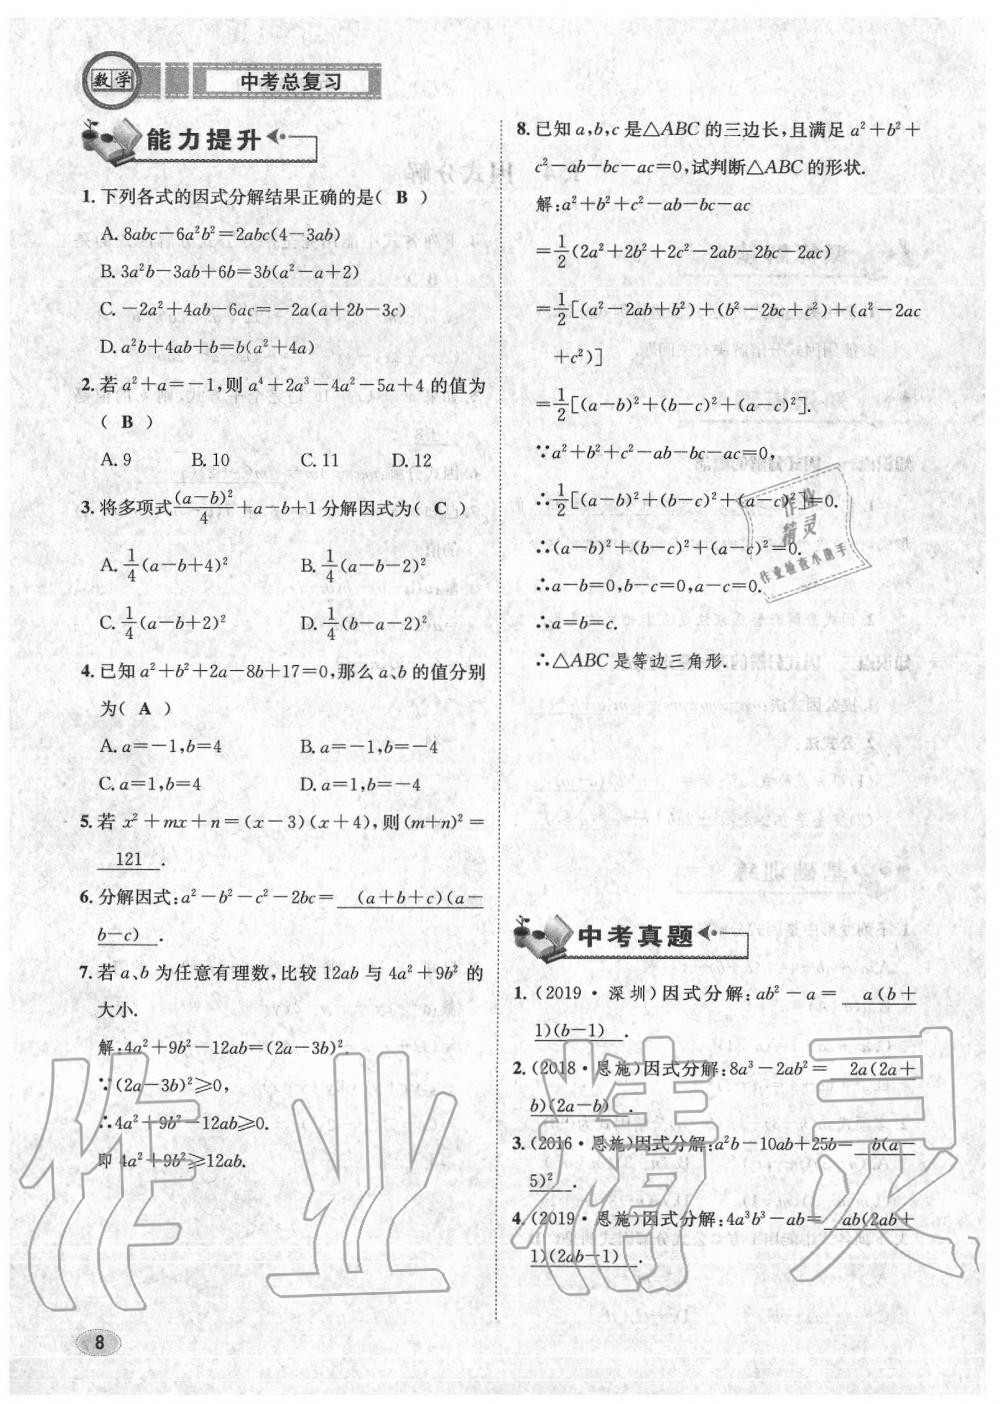 数学 中考总复习
能力提升
1. 下列各式的因式分解结果正确的是( B )
A. 8abc－6a²b²＝2abc(4－3ab)
B. 3a²b－3ab＋6b＝3b(a²－a＋2)
C. －2a²＋4ab－6ac＝－2a(a＋2b－3c)
D. a²b＋4ab＋b＝b(a²＋4a)
2. 若 a²＋a＝－1,则 a⁴＋2a³－4a²－5a＋4 的值为
( B )
A. 9 B. 10 C. 11 D. 12
3. 将多项式(a－b)²/4＋a－b＋1 分解因式为( C )
A. 1/4(a－b＋4)² B. 1/4(a－b－2)²
C. 1/4(a－b＋2)² D. 1/4(b－a－2)²
4. 已知 a²＋b²＋2a－8b＋17＝0,那么 a、b 的值分别
为( A )
A. a＝－1,b＝4 B. a＝－1,b＝－4
C. a＝1,b＝4 D. a＝1,b＝－4
5. 若 x²＋mx＋n＝(x－3)(x＋4),则(m＋n)²＝
121 .
6. 分解因式:a²－b²－c²－2bc＝ (a＋b＋c)(a－
b－c) .
7. 若 a、b 为任意有理数,比较 12ab 与 4a²＋9b² 的
大小.
解:4a²＋9b²－12ab＝(2a－3b)².
∵(2a－3b)²≥0,
∴4a²＋9b²－12ab≥0.
即 4a²＋9b²≥12ab.
8
8. 已知 a,b,c 是△ABC 的三边长,且满足 a²＋b²＋
c²－ab－bc－ac＝0,试判断△ABC 的形状.
解:a²＋b²＋c²－ab－bc－ac
＝1/2(2a²＋2b²＋2c²－2ab－2bc－2ac)
＝1/2[(a²－2ab＋b²)＋(b²－2bc＋c²)＋(a²－2ac
＋c²)]
＝1/2[(a－b)²＋(b－c)²＋(a－c)²].
∵a²＋b²＋c²－ab－bc－ac＝0,
∴1/2[(a－b)²＋(b－c)²＋(a－c)²]＝0.
∴(a－b)²＋(b－c)²＋(a－c)²＝0.
∴a－b＝0,b－c＝0,a－c＝0.
∴a＝b＝c.
∴△ABC 是等边三角形.
作业
精灵
作业检查小助手
中考真题
1. (2019·深圳)因式分解:ab²－a＝ a(b＋
1)(b－1) .
2. (2018·恩施)因式分解:8a³－2ab²＝ 2a(2a＋
b)(2a－b) .
3. (2016·恩施)因式分解:a²b－10ab＋25b＝ b(a－
5)² .
4. (2019·恩施)因式分解:4a³b³－ab＝ ab(2ab＋
1)(2ab－1) .
作业精灵